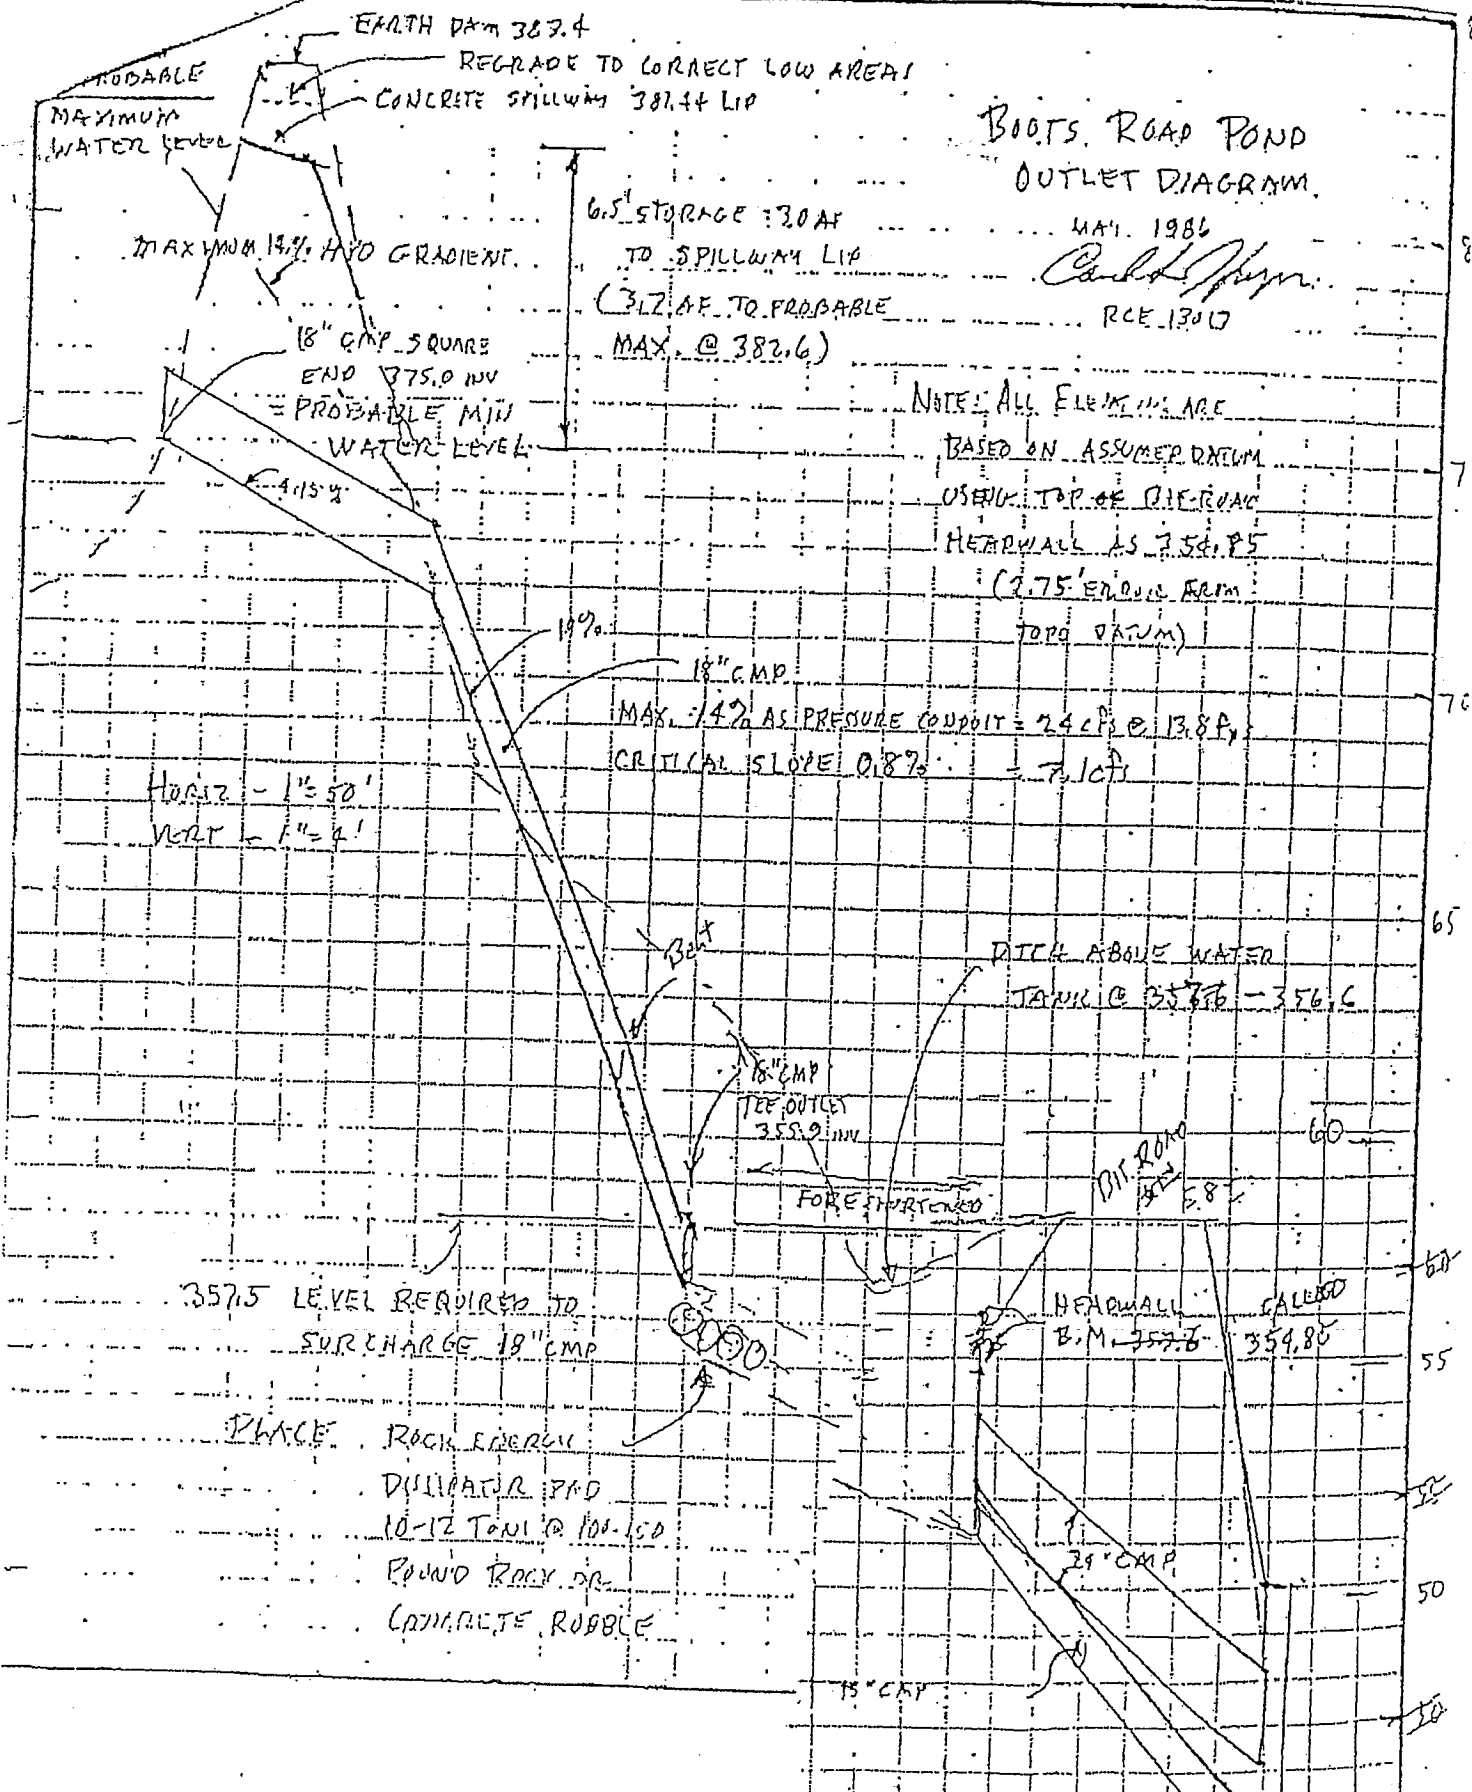 EARTH DAM 383.4
REGRADE TO CORRECT LOW AREAS
CONCRETE SPILLWAY 381.44 LIP
PROBABLE
MAXIMUM
WATER LEVEL
BOOTS ROAD POND
OUTLET DIAGRAM.
MAY. 1986
RCE 13013
6.5' STORAGE = 3.0 AF
TO SPILLWAY LIP
(3.7 AF TO PROBABLE
MAX. @ 382.6)
MAXIMUM 14% HYD GRADIENT
18" CMP SQUARE
END 375.0 INV
= PROBABLE MIN
WATER LEVEL
4.15%
NOTE: ALL ELEVATIONS ARE
BASED ON ASSUMED DATUM
USING TOP OF BIT. ROAD
HEADWALL AS 354.85
(2.75' ERROR FROM
TOPO DATUM)
19%
18" CMP
MAX. 14% AS PRESSURE CONDUIT = 24 cfs @ 13.8 fps
CRITICAL SLOPE 0.8% = 7.1 cfs
HORIZ - 1" = 50'
VERT - 1" = 4'
70
65
Bent
DITCH ABOVE WATER
TANK @ - 356.6
18" CMP
TEE OUTLET
355.9 INV
FORESHORTENED
BIT. ROAD
5.8%
60
357.5 LEVEL REQUIRED TO
SURCHARGE 18" CMP
HEADWALL CALLED
B.M. 357.6 354.85
55
PLACE ROCK ENERGY
DISSIPATOR PAD
10-12 TONS @ 100-150
POUND ROCK OR
CONCRETE RUBBLE
24" CMP
50
15" CMP
50